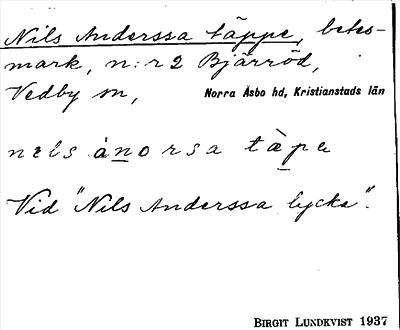 Nils Anderssa täppe, betes-
mark, n:r 2 Bjärröd,
Vedby sn, Norra Åsbo hd, Kristianstads län
nels ànorsa tàpa
Vid "Nils Anderssa lycka".
BIRGIT LUNDKVIST 1937